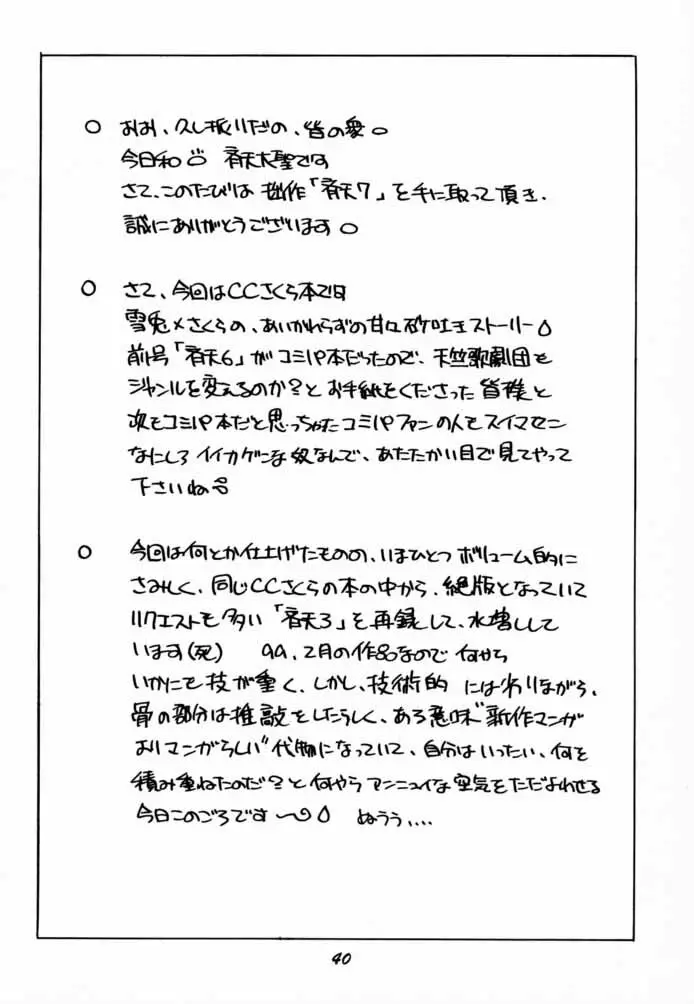 ○ おお、久し振りだの、皆の衆。
今日和 斉天大聖です
さて、このたびは 拙作「斉天7」を手に取って頂き、
誠にありがとうございます。
○ さて、今回はCCさくら本です
雪兎×さくらの、あいかわらずの甘々砂吐きストーリー
前号「斉天6」がコミパ本だったので、天竺歌劇団も
ジャンルを変えるのか?とお手紙をくださった皆様と
次もコミパ本だと思っちゃたコミパファンの人もスイマセン
なにしろイイカゲンな奴なんで、あたたかい目で見てやって
下さいね
○ 今回は何とか仕上げたものの、いまひとつ ボリューム的に
さみしく、同じCCさくらの本の中から、絶版となっていて
リクエストも多い「斉天3」を再録して、水増しして
います(死) 99、2月の作品なので 何やら
いかにも技が重く、しかし、技術的 には劣りながら、
骨の部分は推敲をしたらしく、ある意味"新作マンガ
よりマンガらしい"代物になっていて、自分はいったい、何を
積み重ねたのだ?と何やらアンニュイな空気をただよわせる
今日このごろです〜 ぬうう....
40